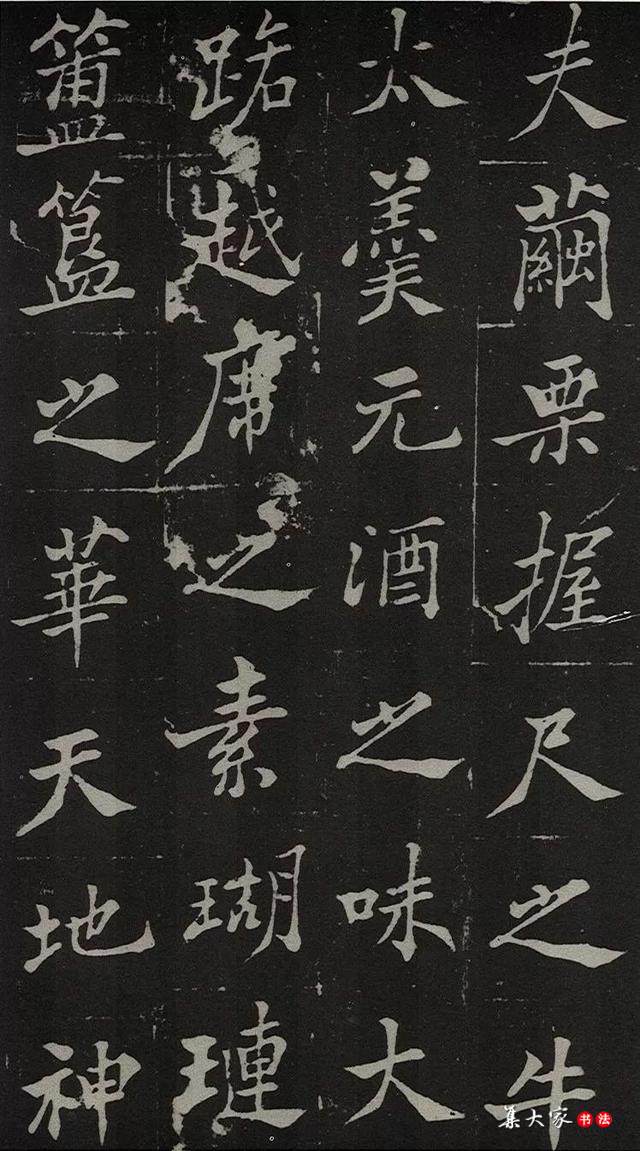 夫繭栗握尺之牛
太羹元酒之味大
路越席之素瑚璉
簠簋之華天地神
集大家书法